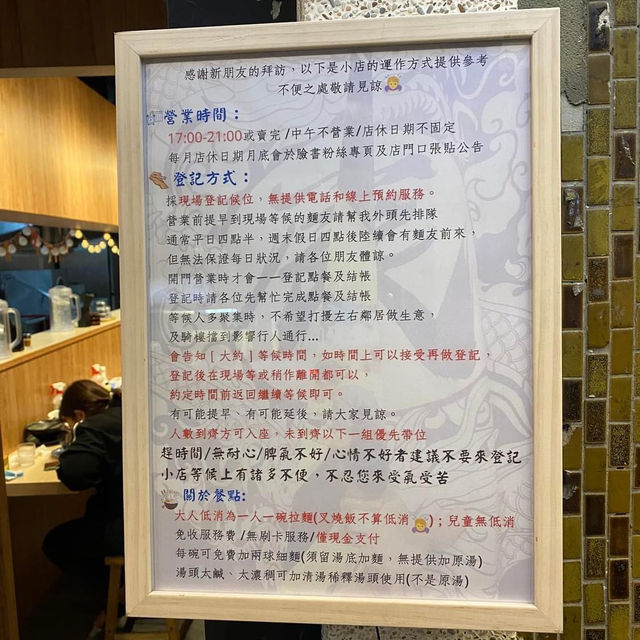 感謝新朋友的拜訪，以下是小店的運作方式提供參考
不便之處敬請見諒
營業時間：
17:00-21:00或賣完 /中午不營業/店休日期不固定
每月店休日期月底會於臉書粉絲專頁及店門口張貼公告
登記方式：
採現場登記候位，無提供電話和線上預約服務。
營業前提早到現場等候的麵友請幫我外頭先排隊
通常平日四點半，週末假日四點後陸續會有麵友前來，
但無法保證每日狀況，請各位朋友體諒。
開門營業時才會一一登記點餐及結帳
登記時請各位先幫忙完成點餐及結帳
等候人入多聚集時，不希望打擾左右鄰居做生意，
及騎樓擋到影響行人通行...
會告知 [ 大約 ] 等候時間，如時間上可以接受再做登記，
登記後在現場等或稍作離開都可以，
約定時間前返回繼續等候即可。
有可能提早、有可能延後，請大家見諒。
人數到齊方可入座，未到齊以下一組優先帶位
趕時間/無耐心/脾氣不好/心情不好者建議不要來登記
小店等候上有諸多不便，不忍您來受氣受苦
關於餐點:
大人低消為一人一碗拉麵(叉燒飯不算低消)；兒童無低消
免收服務費 /無刷卡服務/僅現金支付
每碗可免費加兩球細麵(須留湯底加麵，無提供加原湯)
湯頭太鹹、太濃稠可加清湯稀釋湯頭使用(不是原湯)